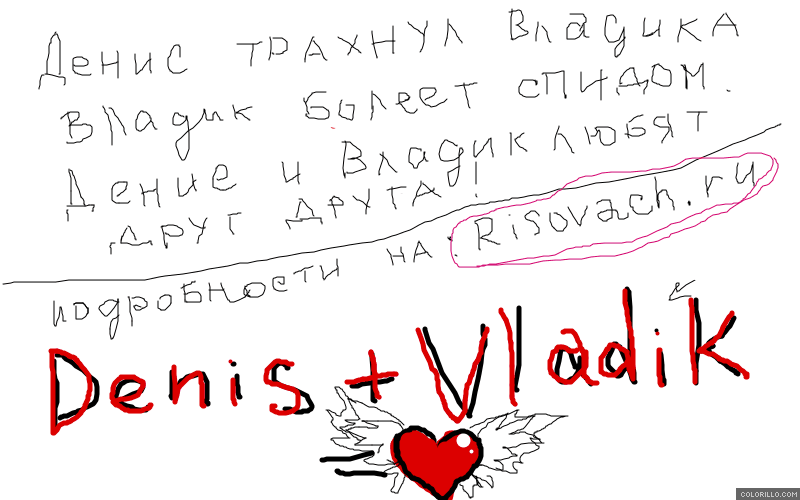 Денис трахнул Владика
Владик болеет спидом.
Дение и Владик любят
друг друга!
подробности на: Risovach.ru
Denis + Vladik
COLORILLO.COM